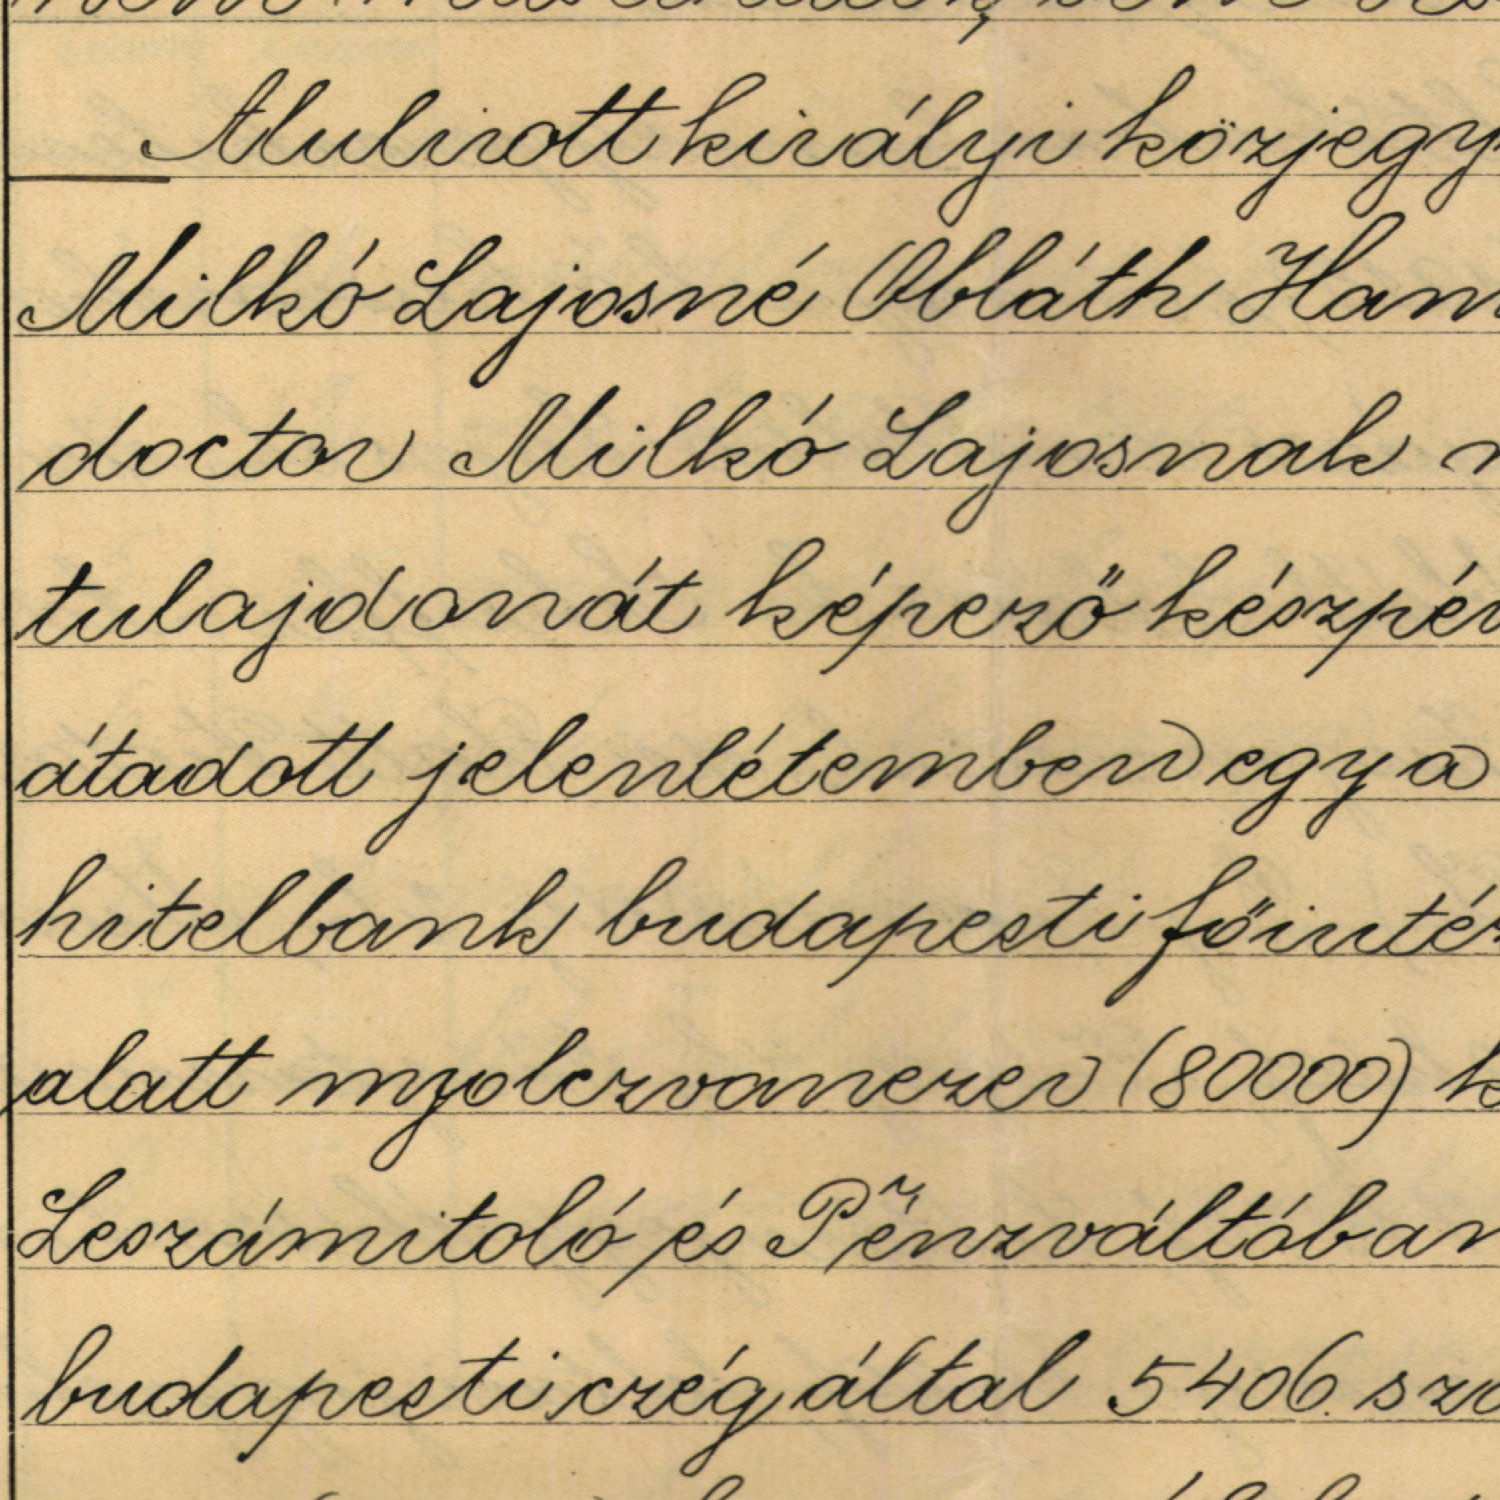 Alulirott királyi közjegy
Milkó Lajosné Obláth Ham
doctor Milkó Lajosnak
tulajdonát képező készpén
átadott jelenlétemben egy a
hitelbank budapesti főinté
alatt nyolczvanezer (80000) k
Leszámitoló és Pénzváltóban
budapesti czég által 5406 szá